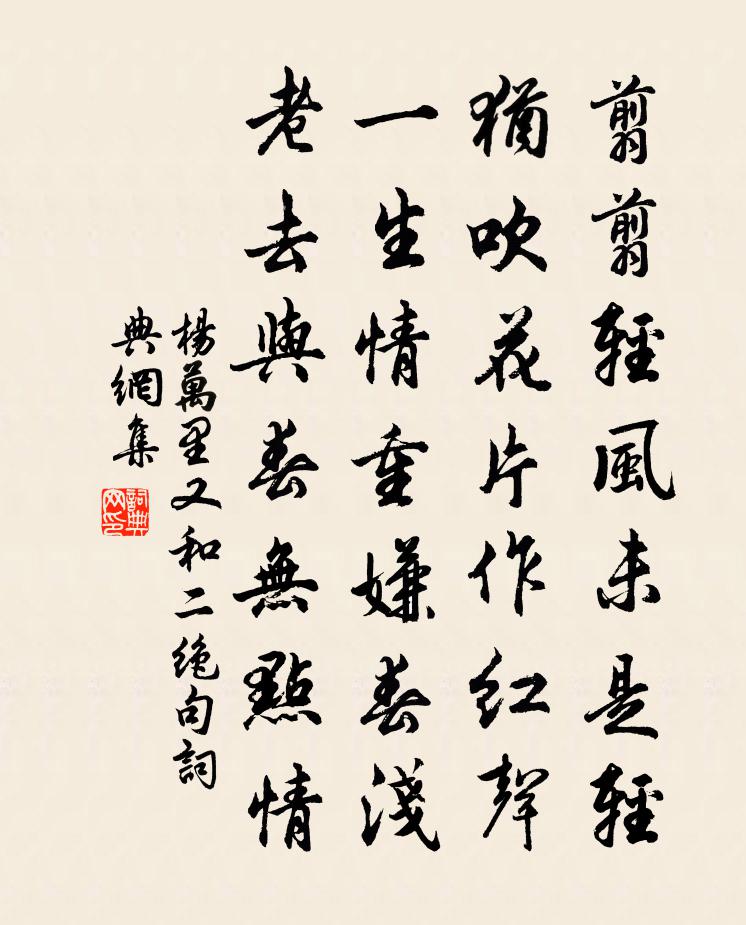 翦翦輕風未是輕
猶吹花片作紅聲
一生情重嫌春淺
老去與春無點情
楊萬里又和二絕句詞
典網集
詞典
网印